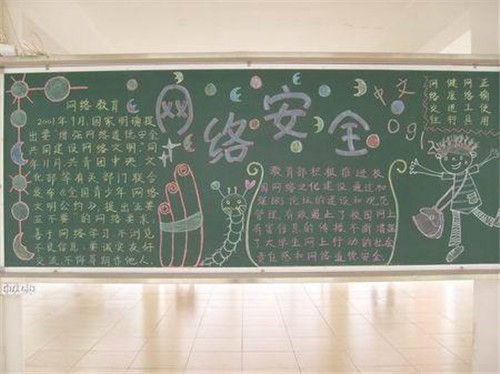 网络教育
2001年1月,国家明确提
出要"增强网络道德安全
共同建设网络文明",同
年11月,共青团中央,文
化部等有关部门联合
发布《全国青少年网络
文明公约》,提出五要
五不要的网络要求,
善于网络学习,不浏览
不良信息,要诚实友好
交流,不侮辱期诈他人.
网络安全
中文
Ogl
教育部积极推进校
园网络文化建设,通过加
强
论坛的建设和规范
管理,有效遏止了校园网上
有害信息的传播,不断增强
了大学生网上行动的社会
责任感和网络道德安全.
正确使用
网络工具
健康进行
网络交往